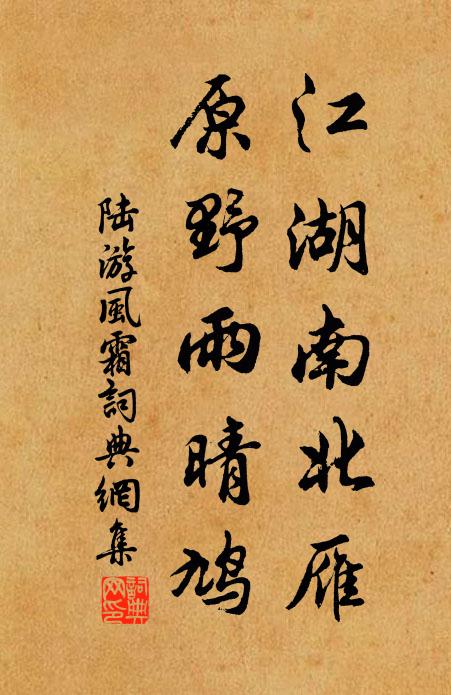 江湖南北雁
原野雨晴鸠
陆游風霜詞典網集
詞典網印